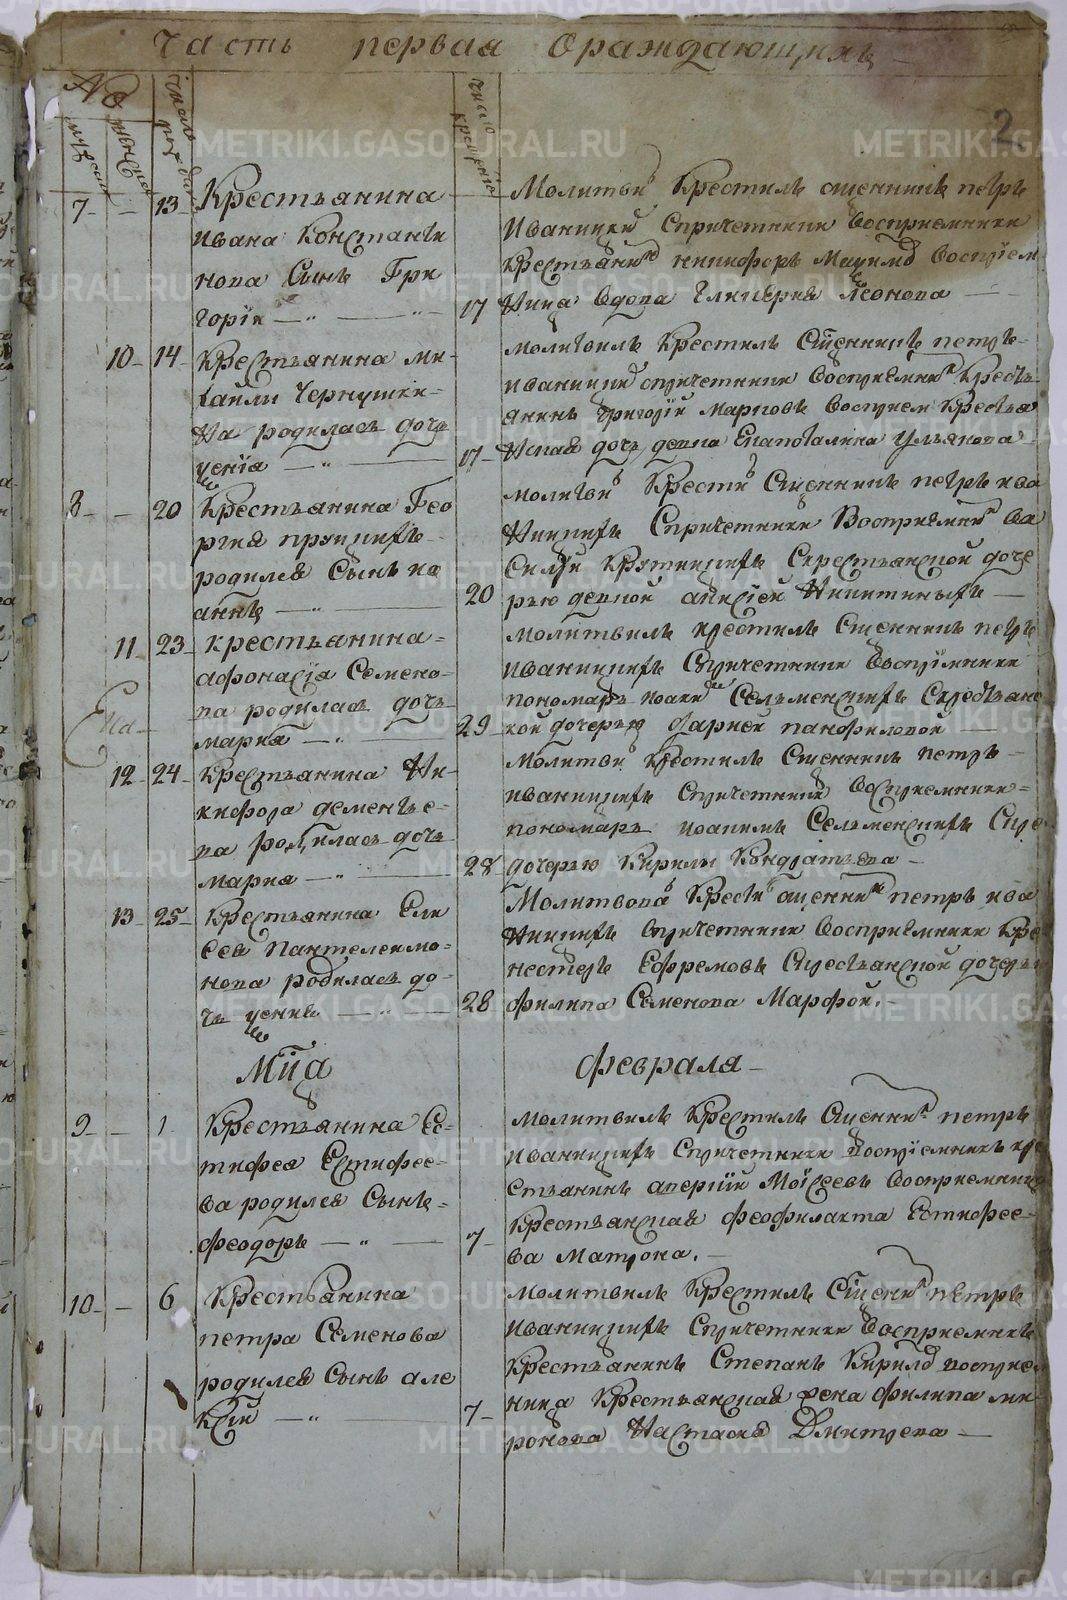 Часть первая ораждающихъ
2
№
мужеска
женска
число рождения
число крещения
7 — 13 Крестьянина
Ивана Константи
нова Сынъ Гри
горїи
17
Молитви Крестилъ сщенникъ петръ
Иваницкий спричетники восприемники
Крестьянинъ никифоръ восприем
ница вдова Гликерия Леонова
10 14 Крестьянина ми-
хаили Чернушки-
на родилась дочь
ксенїа
17
молитвилъ Крестилъ Сщенникъ петръ-
иваницкий спричетники восприемни Кресть
янинъ григорїи марковъ восприем Крестья
нская дочь девка Екапоталина Ульянова
8 — 20 Крестьянина Гео
ргия
родился Сынъ ио
аннъ
20
молитви Крести Сщенникъ петръ ива
ницкихъ Спричетники Восприемни ва
силїи Скрестьянской доче
рью девкой анисїей Никитиныхъ
11 23 крестьянина-
афонасїа Семено-
ва родилась дочь
мариа
29
молитвилъ крестилъ Сщенникъ петръ
иваницкихъ Спричетники восприимники
пономарь иоаки Сельменскихъ Скрестьянс
кой дочерью дарией панфиловой
12 24 крестьянина Ни-
кифора дементье-
ва родилась дочь
мариа
28
молитви Крестилъ Сщенникъ петръ
иваницкихъ Спричетники восприемники-
пономарь иоакимъ Сельменскихъ
дочерью Кирилы Кондратьева
13 25 Крестьянина Ели
сея пантелеимо-
нова родилась до-
чь ксения
28
Молитвова Крести сщенникъ петръ ива
ницкихъ Спричетники восприемники Кре
нестеръ Ефремовъ Скрестьянской дочерью
филипа Семенова Марфой.
Мца Февраля
9 — 1 Крестьянина Ес-
тифея Естифее-
ва родился Сынъ-
феодоръ
7
молитвилъ Крестилъ Сщенни петръ
иваницкихъ Спричетники восприемникъ кре
стьянинъ аверкїи Моїсеевъ восприемница
Крестьянская феофилакта Естифее-
ва матрона.
10 — 6 Крестьянина
петра Семенова
родился Сынъ але
ксїи
7
молитвилъ Крестилъ Сщенни петръ
иваницкихъ Спричетники восприемникъ
Крестьянинъ Степанъ Кирилъ восприем
ница Крестьянская жена филипа ми
ронова Настасья Дмитрева